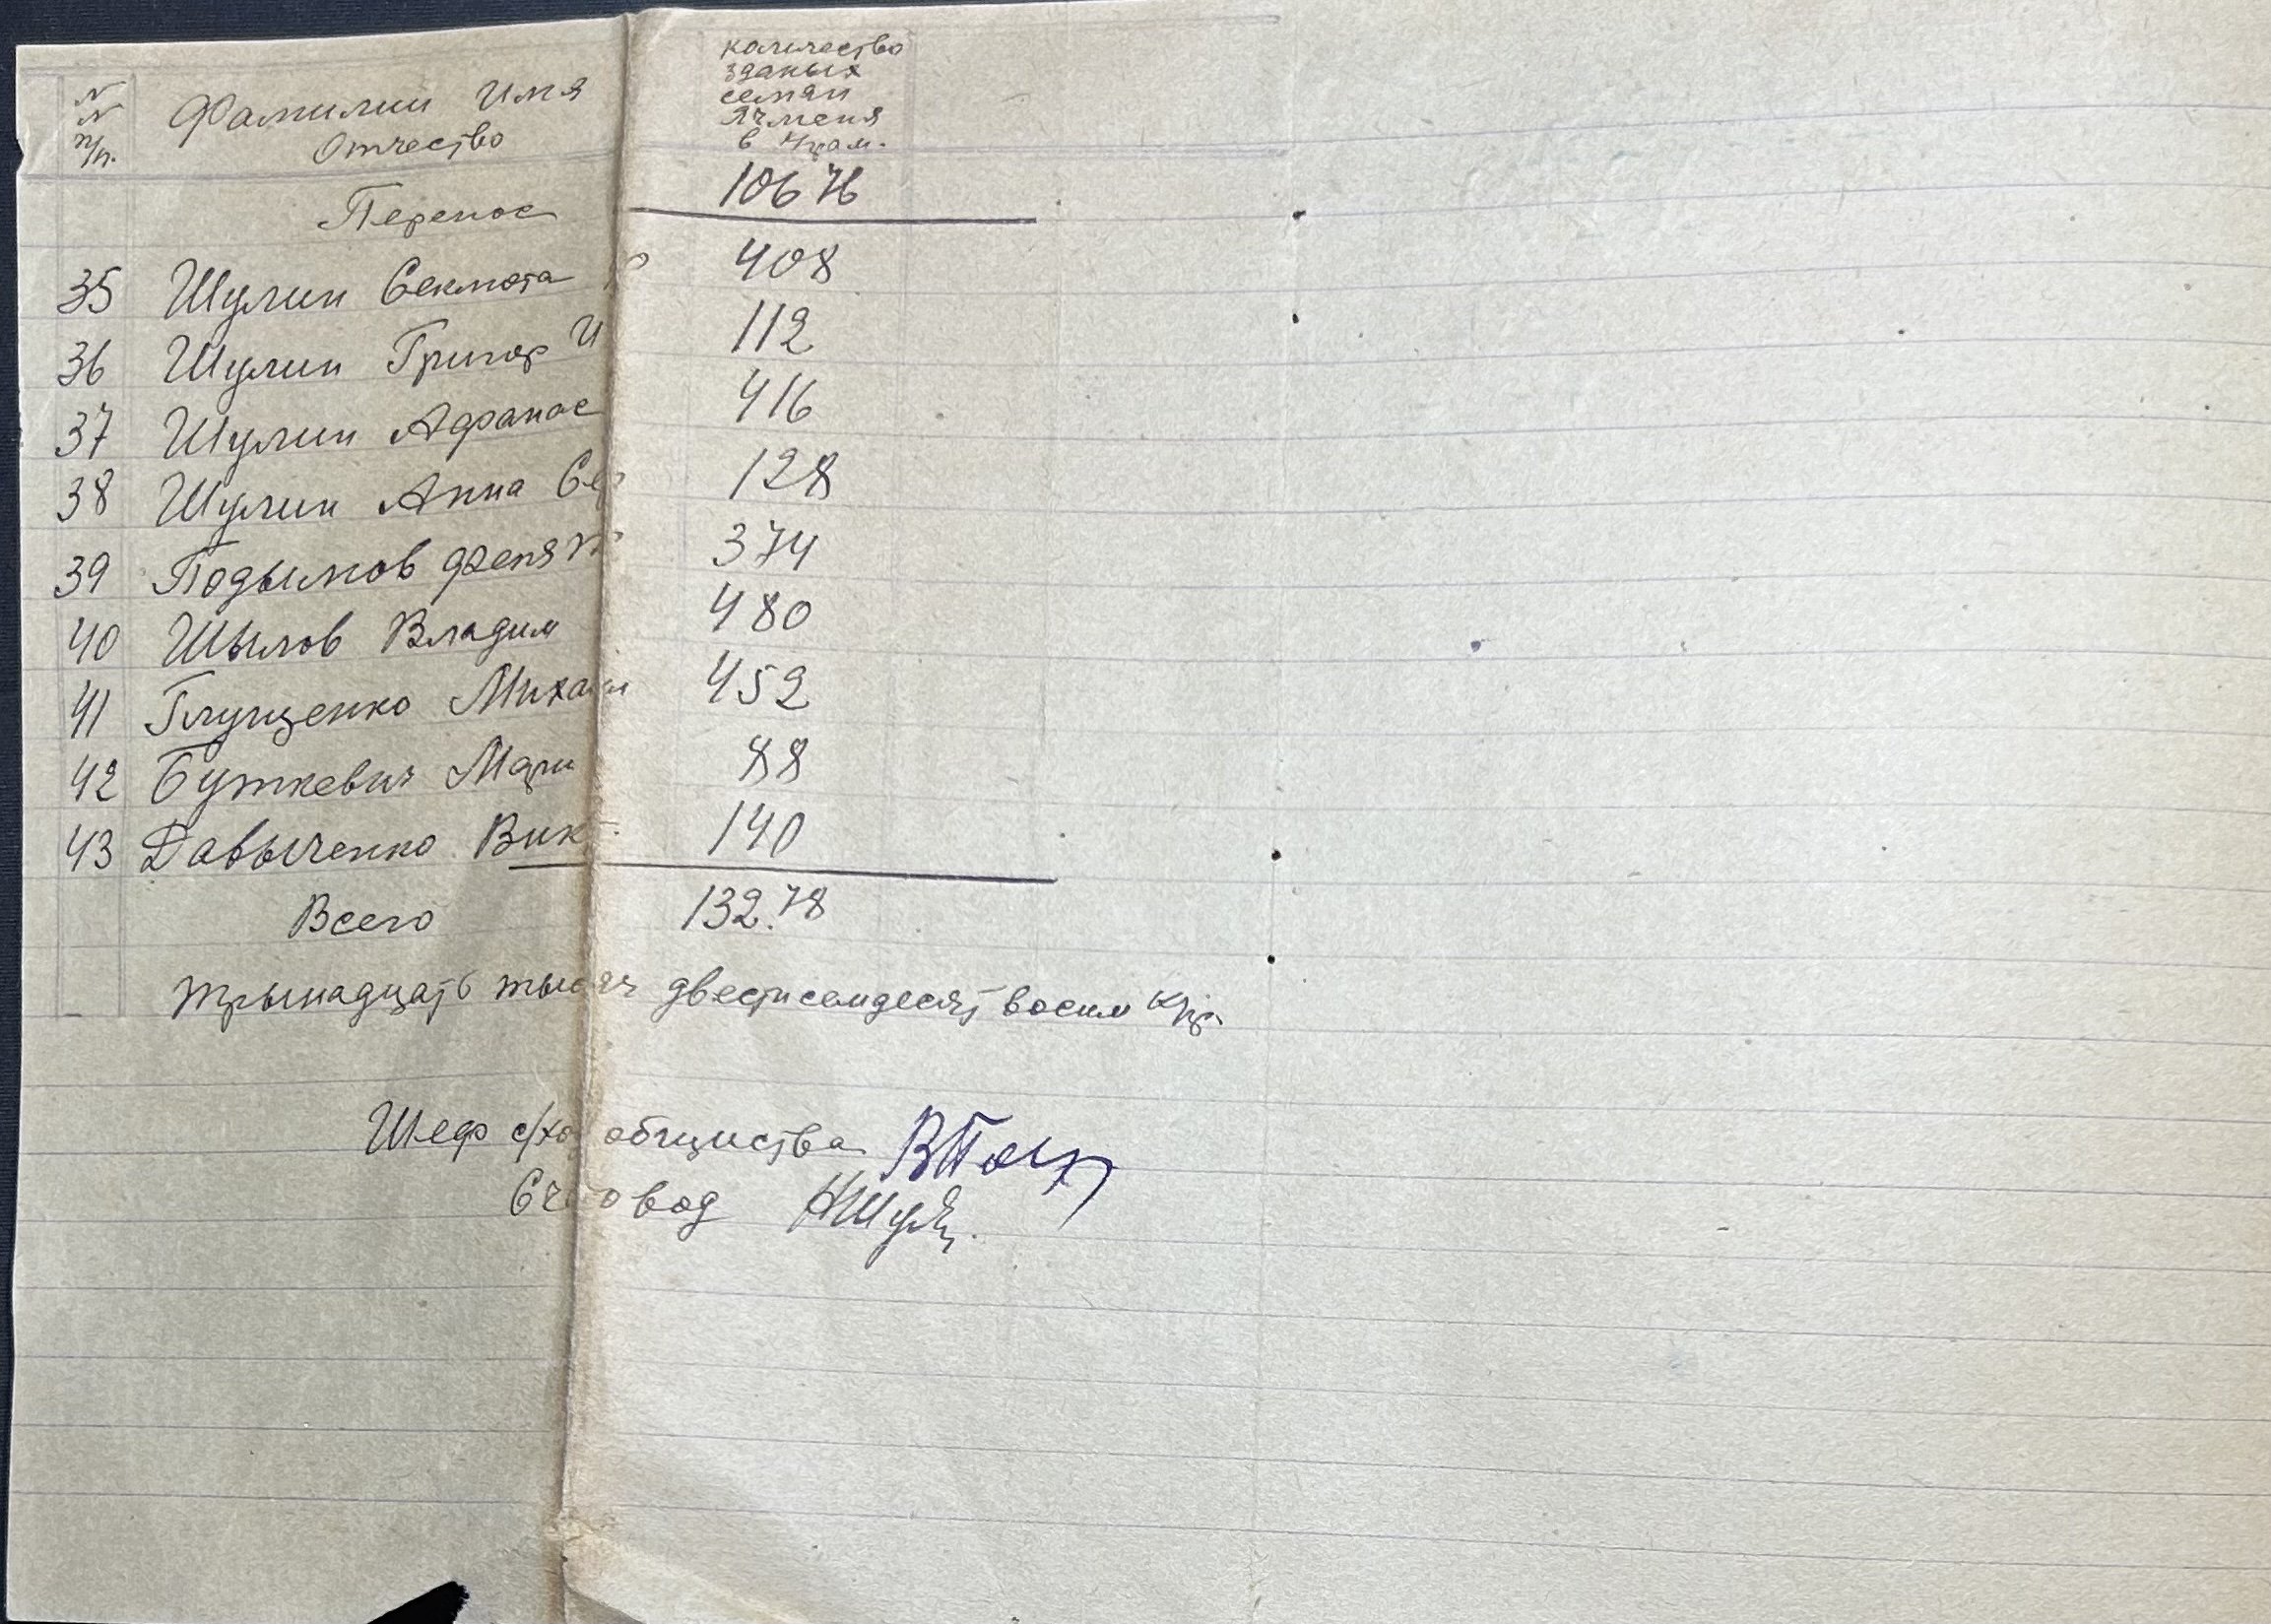 N
N
п/п.
Фамилии Имя
Отчество
каличество
зданых
семян
Ячменя
в кграм.
Перенос 10676
35 Шулин Секлета 408
36 Шулин Григор И 112
37 Шулин Афанас 416
38 Шулин Анна Сер 128
39 Подымов Феня 374
40 Шылов Владим 480
41 Глущенко Михаил 452
42 Буткевич Мари 88
43 Давыченко Вик 140
Всего 132.78
трынадцать тысяч двести семдесят восим кгр.
Шеф с/хоз общиства
Счетовод НШул